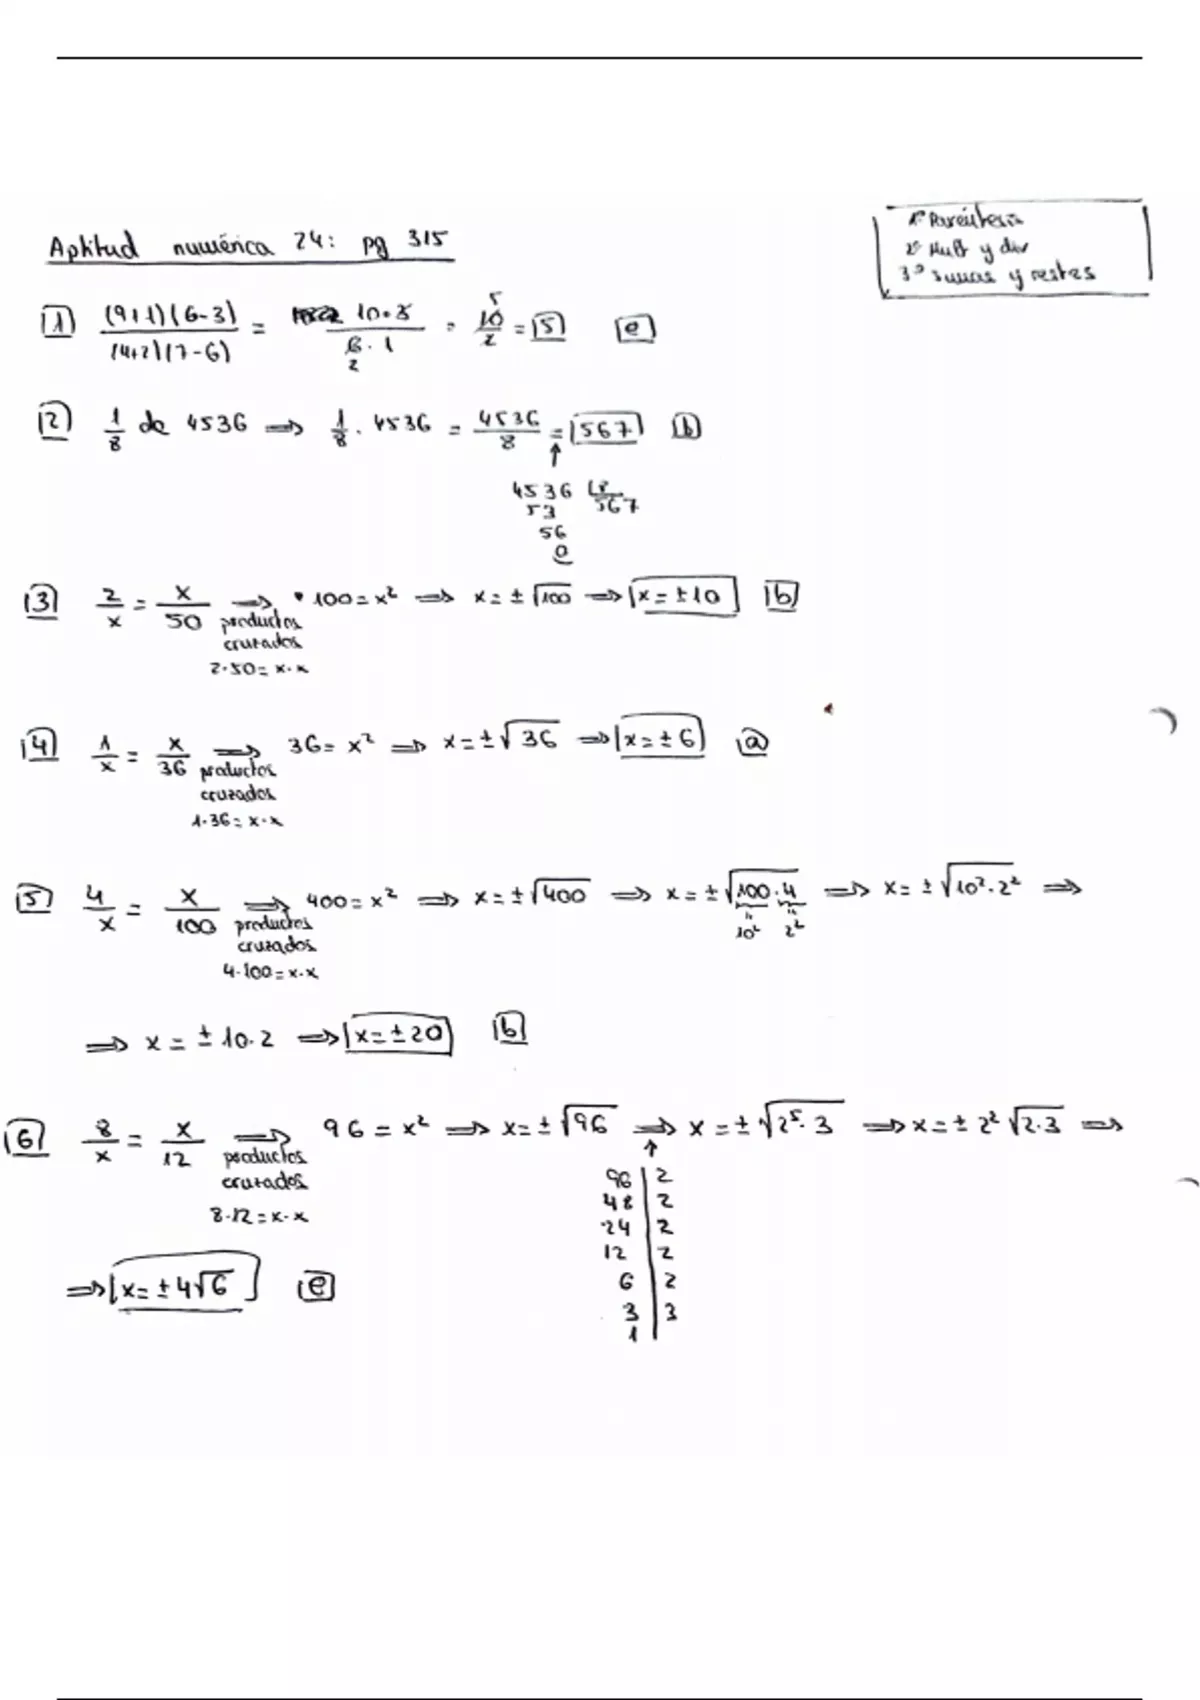 Aptitud numérica 24: pg 315
1º Paréntesis
2º Mult y div
3º Sumas y restas
1) (9+1)(6-3) / (4+2)(7-6) = 10·3 / 6·1 = 10/2 = 5 e
2
5
2) 1/8 de 4536 ⟹ 1/8 · 4536 = 4536/8 = 567 b
↑
4536 | 8
53 567
56
0
3) 2/x = x/50 ⟹ 100 = x² ⟹ x = ±√100 ⟹ x = ±10 b
productos
cruzados
2·50 = x·x
4) 1/x = x/36 ⟹ 36 = x² ⟹ x = ±√36 ⟹ x = ±6 a
productos
cruzados
1·36 = x·x
5) 4/x = x/100 ⟹ 400 = x² ⟹ x = ±√400 ⟹ x = ±√100·4 ⟹ x = ±√10²·2² ⟹
productos
cruzados
10² 2²
4·100 = x·x
⟹ x = ±10·2 ⟹ x = ±20 b
6) 8/x = x/12 ⟹ 96 = x² ⟹ x = ±√96 ⟹ x = ±√2⁵·3 ⟹ x = ±2²√2·3 ⟹
productos
cruzados
8·12 = x·x
↑
96 | 2
48 | 2
24 | 2
12 | 2
6 | 2
3 | 3
1
⟹ x = ±4√6 e